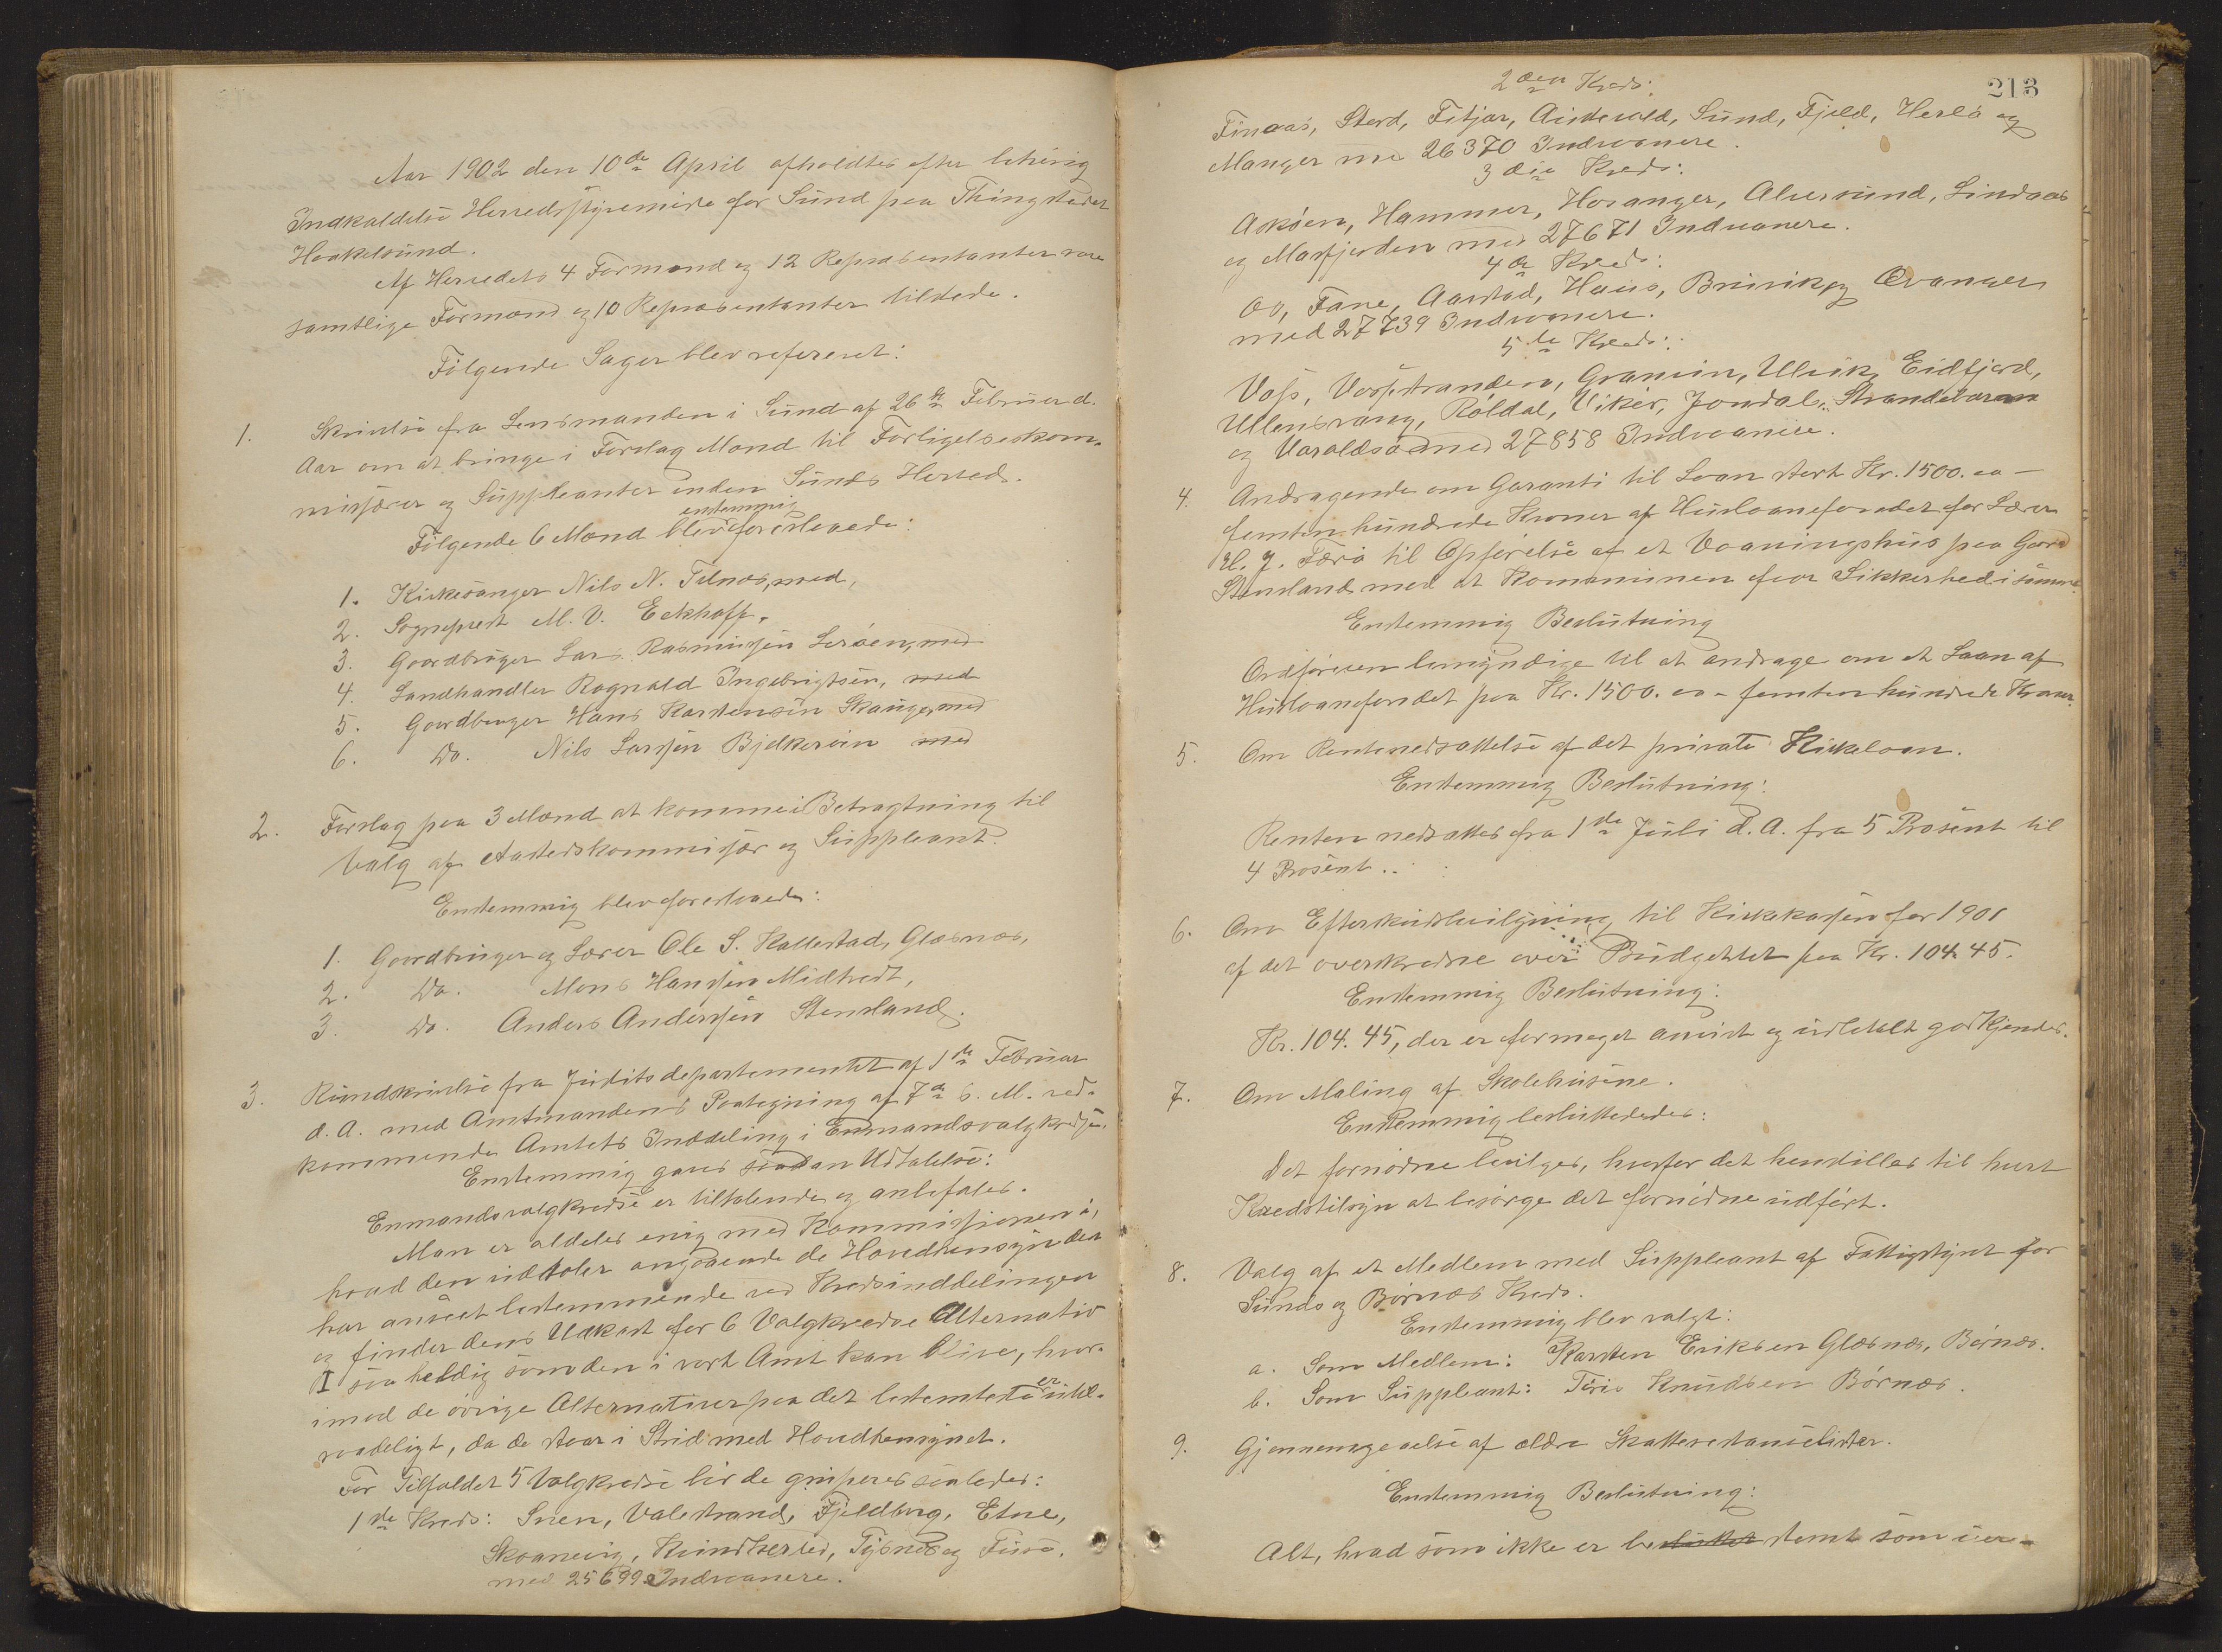 Aar 1902 den 10de April afholdtes efter lovlig
Indkaldelse Herredsstyremøde for Sund paa Thingstedet
Haakelsund.
Af Herredets 4 Formænd og 12 Repræsentanter vare
samtlige Formænd og 10 Repræsentanter tilstede.
Følgende Sager blev refereret:
1. Skrivelse fra Lensmanden i Sund af 26de Februar d.
Aar om at bringe i Forslag Mænd til Forligelseskom-
missærer og Suppleanter inden Sunds Herred.
Følgende 6 Mænd blev enstemmig foreslaaede:
1. Kirkesanger Nils N. Telnæs, med,
2. Sogneprest M. V. Eckhoff,
3. Gaardbruger Lars Rasmussen Lerøen, med
4. Landhandler Ragnvald Ingebrigtsen, med
5. Gaardbruger Hans Karstensen Skauge, med
6. Do. Nils Larssen Bjelkerøen med
2. Forslag paa 3 Mænd at komme i Betragtning til
Valg af Aastedskommissær og Suppleant.
Enstemmig blev foreslaaede:
1. Gaardbruger og Lærer Ole S. Kallestad, Glæsnæs,
2. Do. Mons Hanssen Midttveit,
3. Do. Anders Anderssen Stensland.
3. Rundskrivelse fra Justitsdepartementet af 1ste Februar
d. A. med Amtmandens Paategning af 7de s. M. ved-
kommende Amtets Inddeling i Enmandsvalgkredse.
Enstemmig gaves saadan Udtalelse:
Enmandsvalgkredse er tiltalende og anbefales.
Man er aldeles enig med Kommissionen i,
hvad den udtaler angaaende de Hovedhensyn den
har anseet bestemmende ved Kredsinddelingen
og finder dens Udkast for 6 Valgkredse Alternativ
I saa heldig som den i vort Amt kan blive, hvor-
imod de øvrige Alternativer paa det bestemteste er util-
raadeligt, da de staar i Strid med Hovedhensynet.
For Tilfældet 5 Valgkredse bør de gruperes saaledes:
1ste Kreds: Sveen, Valestrand, Fjeldberg, Etne,
Skaanevig, Kvindherred, Tysnes og Fuse,
med 25699 Indvaanere.
213
2den Kreds:
Finaas, Stord, Fitjar, Austevold, Sund, Fjeld, Herlø og
Manger med 26370 Indvaanere.
3die Kreds:
Askøen, Hammer, Hosanger, Alversund, Lindaas
og Masfjorden med 27671 Indvaanere.
4de Kreds:
Os, Fane, Aarstad, Haus, Bruvik og Evanger
med 27739 Indvaanere.
5te Kreds:
Voss, Vossestranden, Granvin, Ulvik, Eidfjord,
Ullensvang, Røldal, Vikør, Jondal, Strandebarm
og Varaldsø med 27858 Indvaanere.
4. Andragende om Garanti til Laan stort Kr. 1500.00 –
femten hundrede Kroner af Huslaanefondet for Lærer
H. J. Færø til Opførelse af et Vaaningshus paa Gaard
Stensland med at Kommunen faar Sikkerhed i samme.
Enstemmig Beslutning
Ordføreren bemyndiges til at andrage om et Laan af
Huslaanefondet paa Kr. 1500.00 – femten hundrede Kroner.
5. Om Rentenedsættelse af det private Kirkelaan.
Enstemmig Beslutning:
Renten nedsættes fra 1ste Juli d. A. fra 5 Prosent til
4 Prosent.
6. Om Efterskudsbevilgning til Kirkekassen for 1901
af det overskredne over Budgettet paa Kr. 104.45.
Enstemmig Beslutning:
Kr. 104.45, der er formeget anvist og udbetalt godkjendes.
7. Om Maling af Skolehusene.
Enstemmig besluttedes:
Det fornødne bevilges, hvorfor det henstilles til hvert
Kredstilsyn at besørge det fornødne udført.
8. Valg af et Medlem med Suppleant af Fattigstyret for
Sunds og Børnæs Kreds.
Enstemmig blev valgt:
a. Som Medlem: Karsten Eriksen Glæsnæs, Børnæs.
b. Som Suppleant: Tøris Knudsen Børnæs.
9. Gjennemgaaelse af ældre Skatterestanselister.
Enstemmig Beslutning:
Alt, hvad som ikke er bestemt som uere-